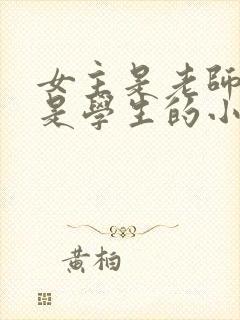 女主是老師
是學生的小
黃柏